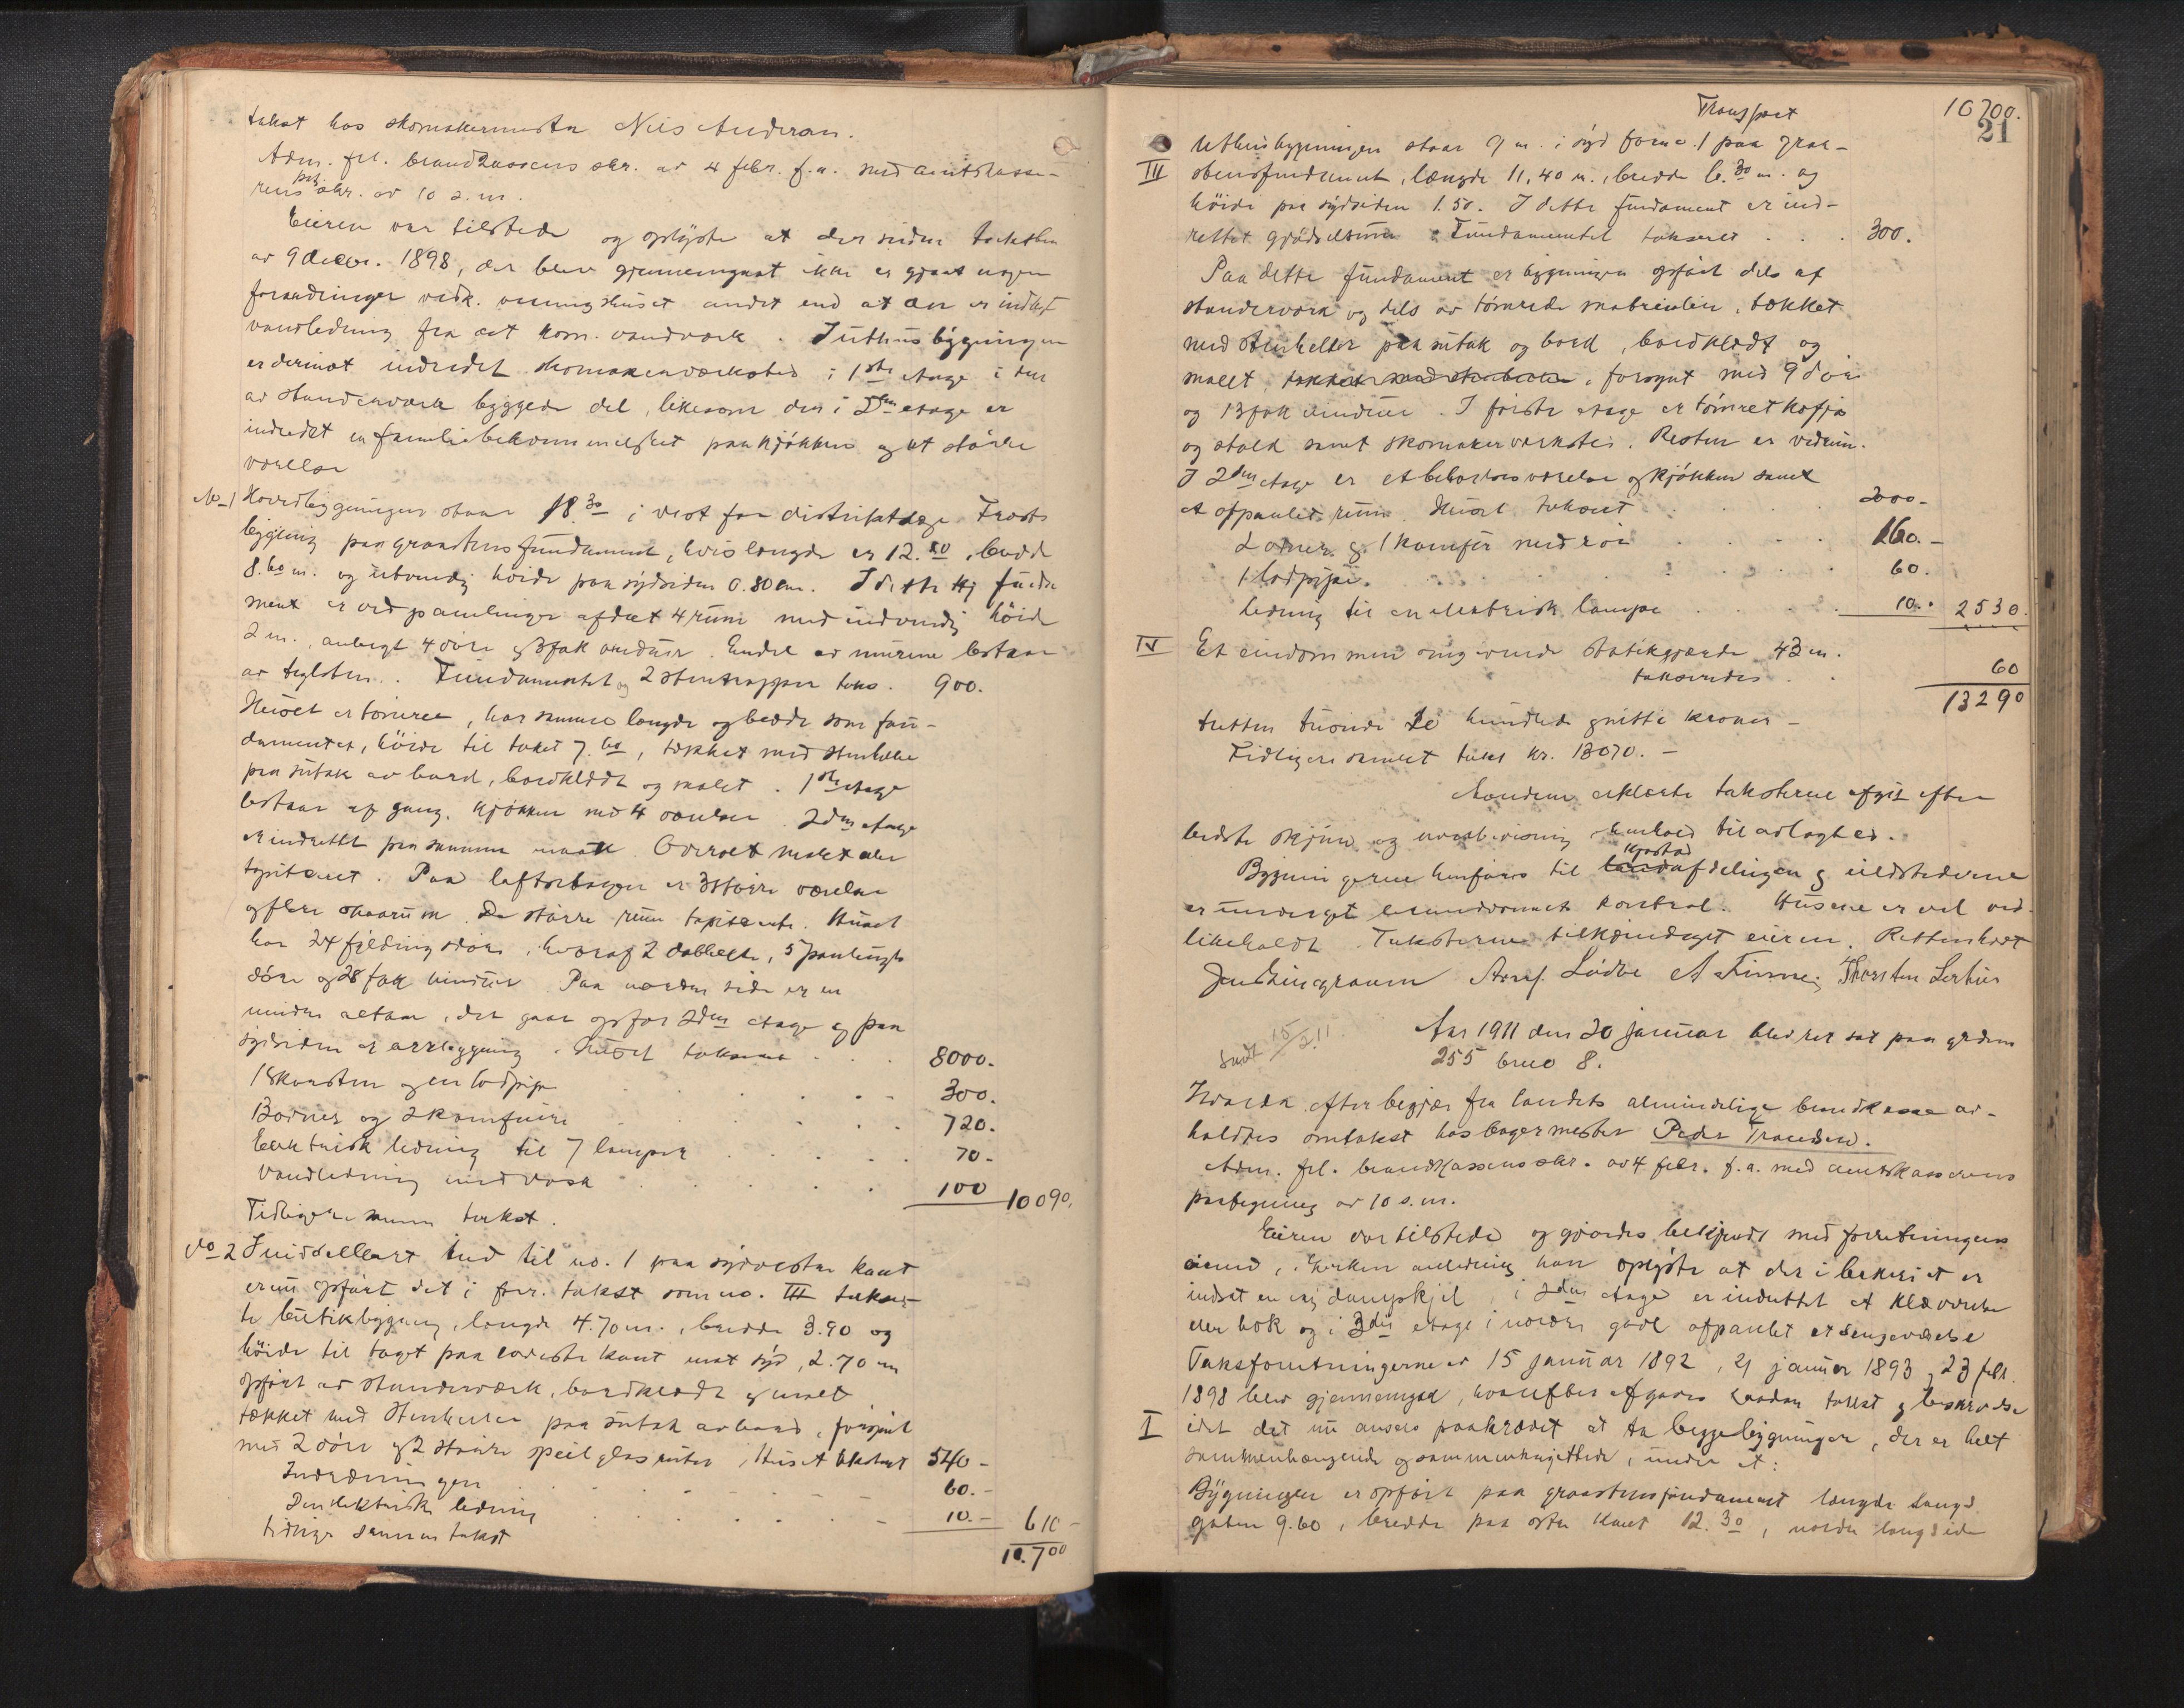 takst hos skomakermester Nils Andersen.
Adm. frl. brandkassens skr. av 4 febr. f.a. med amtskasse-
rens paa skr. av 10 s.m.
Eieren var tilstede og oplyste at der siden taksten
av 9 decbr. 1898, der blev gjennemgaat ikke er gjort nogen
forandringer vedk. vaaningshuset andet end at der er indlagt
vandledning fra det kom. vandverk. I uthusbygningen
er derimot indredet skomakerverksted i 1ste etage i den
av standerverk byggede del, likesom der i 2den etage er
indredet en familiebekvemmelighet paa kjøkken og et større
værelse
No 1 Hovedbygningen staar 18.30 i vest for distriktslæge Frosts
bygning paa graastensfundament, hvis længde er 12.50, bredde
8.60 m. og utvendig høide paa sydsiden 0.80 cm. I dette funda
ment er ved panelinger afdelt 4 rum med indvendig høide
2 m., anbragt 4 døre og 3 fak vinduer. Endel av murene bestaar
av teglsten. Fundamentet og 2 stentrapper taks. 900.
Huset er tømret, har samme længde og bredde som fun-
damentet, høide til taket 7.60, tækket med stenheller
paa sutak av bord, bordklædt og malet. 1ste etage
bestaar af gang, kjøkken med 4 værelser. 2den etage
er indrettet paa samme maate. Overalt malet eller
tapiteret. Paa loftsetagen er 3 større værelser
og flere skaarum. De større rum tapiteret. Huset
har 24 fyldingsdøre, hvoraf 2 dobbelte, 5 panelings
døre og 28 fak vinduer. Paa nordre side er en
mindre altan, der gaar op for 2den etage og paa
sydsiden et arkbygning. Huset takseret . . . 8000.
1 Skorsten og en lodpipe . . . 300.
13 ovner og 2 komfurer . . . 720.
Elektrisk ledning til 7 lamper . . . 70-
Vandledning med vask . . . 100 10090.
Tidligere samme takst.
No 2 Umiddelbart ind til no. 1 paa sydvestre kant
er nu opført det i forr. takst som no. III takser-
te butikbygning, længde 4.70 m., bredde 3.90 og
høide til taget paa laveste kant mot syd, 2.70 m
opført av standerverk, bordklædt og malet
tækket med stenheller paa sutak av bord, forsynt
med 2 døre og 2 større speilglasruter, Huset takseret 540-
Indredningen . . . 60.-
Den elektriske ledning . . . 10.- 610-
tidlige samme takst 10.700
Transport 10700.
21
Uthusbygningen staar 9 m. i syd for no. 1 paa graa-
III stensfundament, længde 11,40 m., bredde 6.30 m. og
høide paa sydsiden 1.50. I dette fundament er ind-
rettet gjødselrum. Fundamentet takseret . . . 300.
Paa dette fundament er bygningen opført dels af
standerverk og dels av tømrede materialier, tækket
med stenheller paa sutak og bord, bordklædt og
malet, tækket med stenheller, forsynt med 9 døre
og 13 fak vinduer. I første etage er tømret kofjøs
og stald samt skomakerverksted. Resten er vedrum.
I 2den etage er et beboelsesværelse og kjøkken samt
et afpanlet rum. Huset takseret . . . 2000-
2 ovner og 1 komfur med rør . . . 160.-
1 lodpipe. . . . 60.
ledning til en elektrisk lampe . . . 10.- 2530.
IV Et eiendommen omgivende stakitgjærde 42 m.
takseredes . . 60
13290
tretten tusinde to hundrede og nitti kroner -
Tidligere samlet takst kr. 13070.-
Mændene erklærte taksterne afgit efter
bedste skjøn og overbevisning i henhold til avlagt ed.
Bygningerne henføres til landafdelingen kjøstad og ildstederne
er underlagt brandvæsenets kontrol. Husene er vel ved-
likeholdt. Taksterne tilkjendegit eieren. Retten hævet
Jens Lindgraven Arnf. Lødve A Finne; Thorsten Lerhus
Sendt 15/2 11.
Aar 1911 den 20 januar blev ret sat paa grdnr
255 brno 8.
Hvorda efter begjær fra landets almindelige brandkasse av-
holdtes omtakst hos bagermester Peder Trondsen.
Adm. frl. brandkassens skr. av 4 febr. f.a. med amtskasserens
paategning av 10 s.m.
Eieren var tilstede og gjordes bekjendt med forretningens
øiemed, i hvilken anledning han oplyste at der i bakeriet er
indsat en ny dampkjel, i 2den etage er indrettet et klæværelse
eller bok og i 3die etage i nordre gavl afpanlet et sengeværelse
Taksforretningerne av 15 januar 1892, 21 januar 1893, 23 febr.
1898 blev gjennemgaat, hvorefter afgaves saadan takst og beskrivelse
I idet det nu ansees paakrævet at ta begge bygninger, der er helt
sammenhængende og sammenknyttede, under et:
Bygningen er opført paa graastensfundament længde langs
gaten 9.60, bredde paa østre kant 12.30, nordre langside